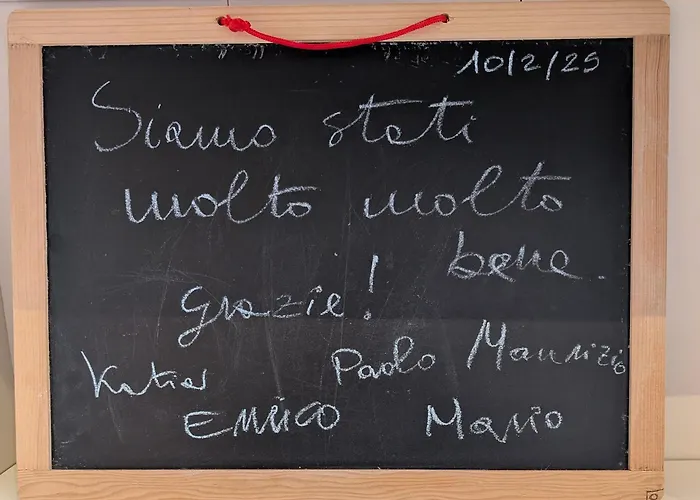 10/2/25
Siamo stati
molto molto
bene.
Grazie!
Katia Paolo Maurizio
Enrico Mario